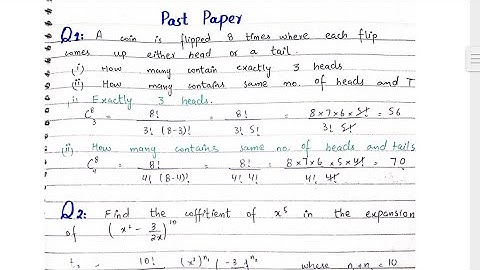 Past Paper
Q1: A coin is flipped 8 times where each flip
comes up either head or a tail.
(i) How many contain exactly 3 heads
(ii) How many contains same no. of heads and T
(i) Exactly 3 heads.
C⁸₃ = 8! / 3! (8-3)! = 8! / 3! 5! = 8x7x6x5! / 3! 5! = 56
(ii) How many contains same no. of heads and tails
C⁸₄ = 8! / 4! (8-4)! = 8! / 4! 4! = 8x7x6x5x4! / 4! 4! = 70
Q2: Find the coffitient of x⁵ in the expansion
of (x² - 3/2x)¹⁰
10! (x²)ⁿ¹ (-3)ⁿ² where n₁+n₂ = 10